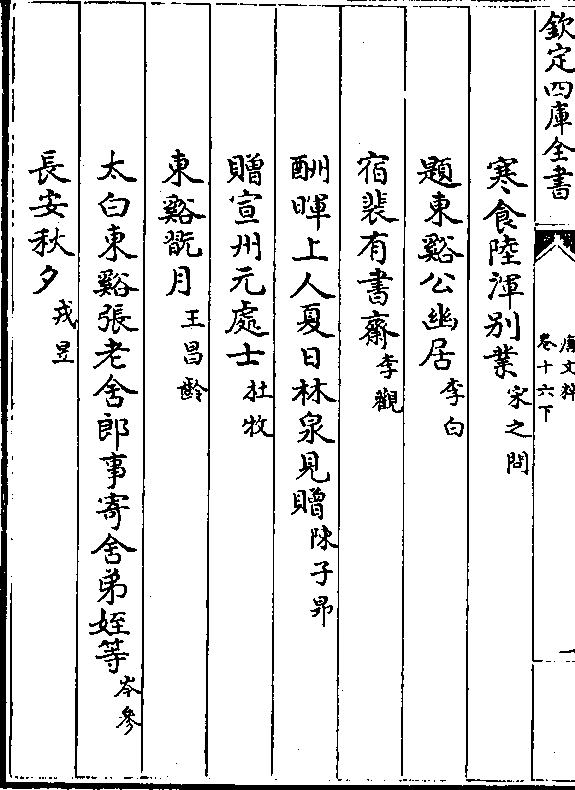 欽定四庫全書
唐文粹
卷十六下
一
寒食陸渾别業宋之問
題東谿公幽居李白
宿裴有書齋李觀
酬暉上人夏日林泉見贈陳子昻
贈宣州元處士杜牧
東谿翫月王昌齡
太白東谿張老舍郎事寄舍弟姪等岑參
長安秋夕戎昱